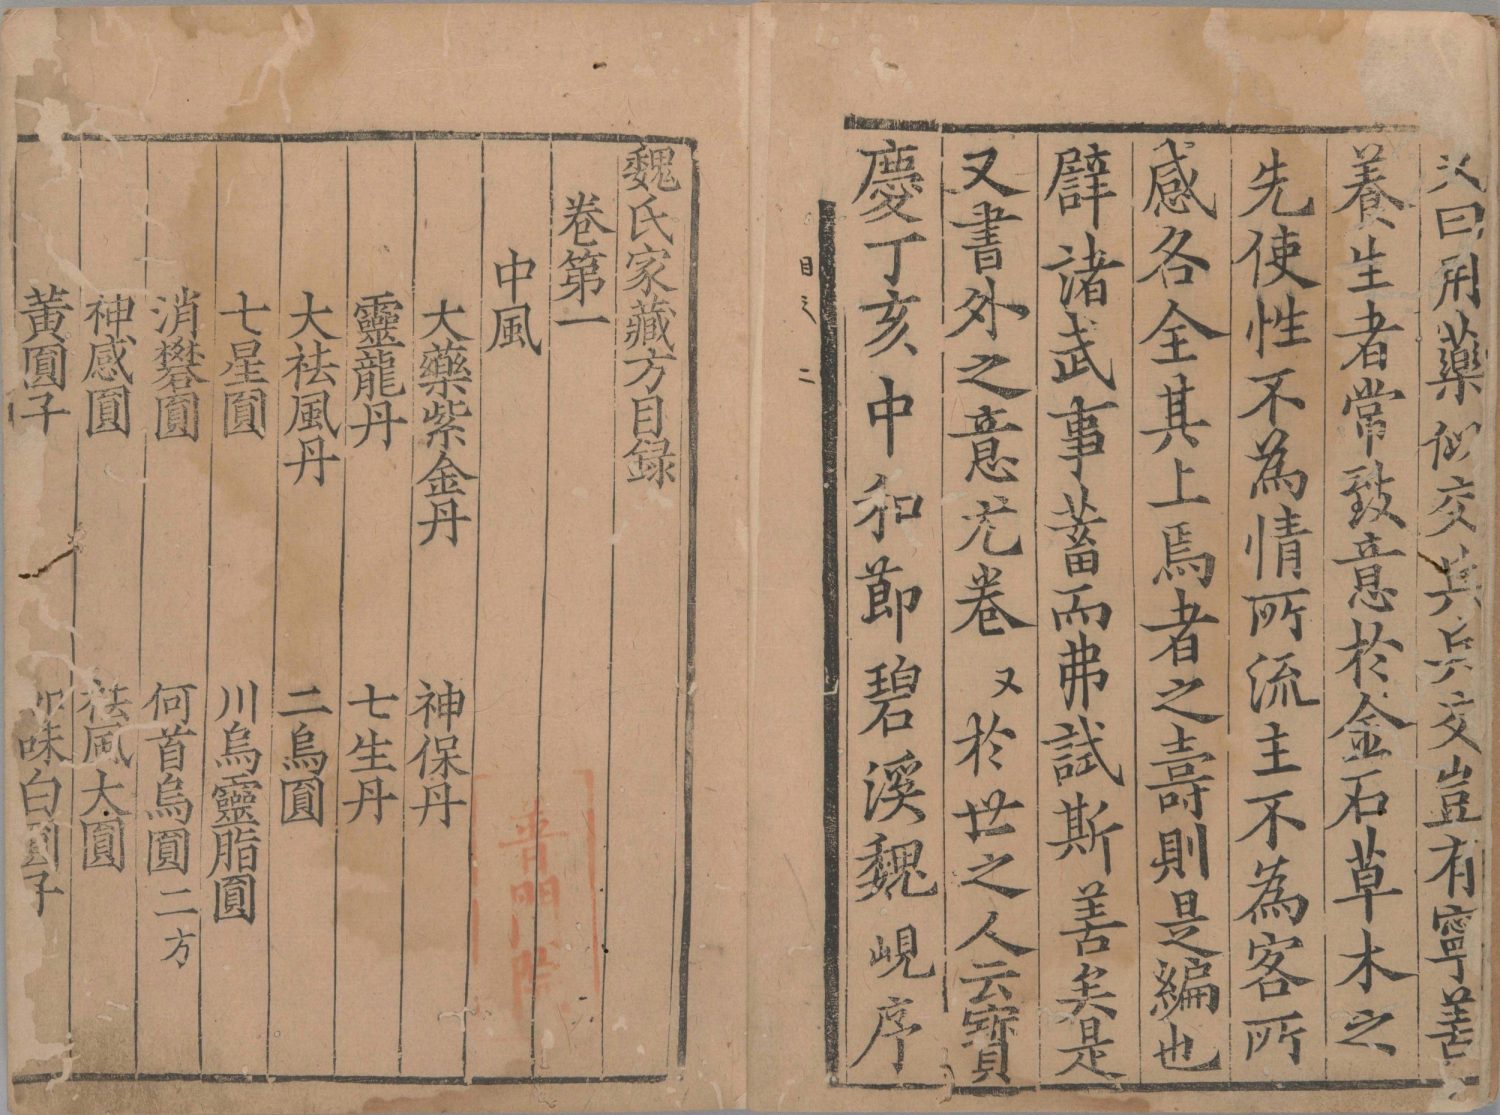 又曰用藥似交兵兵交豈有寧善
養生者常致意於金石草木之
先使性不為情所流主不為客所
感各全其上焉者之壽則是編也
辟諸武事蓄而弗試斯善矣是
又書外之意尤卷又於世之人云寶
慶丁亥中和節碧溪魏峴序
目之 二
魏氏家藏方目録
卷第一
中風
大藥紫金丹 神保丹
靈龍丹 七生丹
大祛風丹 二烏圓
七星圓 川烏靈脂圓
消礬圓 何首烏圓二方
神感圓 祛風大圓
黃圓子 味白圓子
普門院